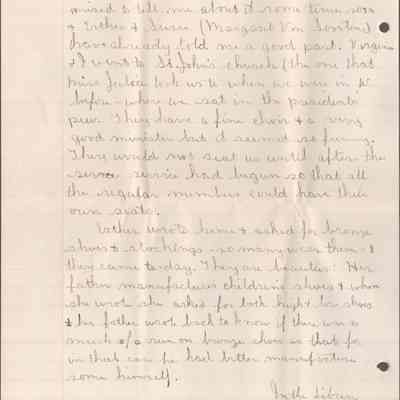 mised to tell me about it some time soon
& Esther & Susie (Margaret Van
have already told me a good part. Virginia
& I went to St. John's church (the one that
Miss Julia took us to when we were in W
before - where we sat in the presidents
pew. They have a fine choir & a very
good minister but it seemed so funny.
They would not seat us until after the
service had begun so that all
the regular members could have their
own seats.
Esther wrote home & asked for bronze
shoes & stockings - so many wear them - &
they came to-day. They are beauties. Her
father manufactures children's shoes & when
she wrote she asked for both high & low shoes
& her father wrote back to know if there was a
much of a run on bronze shoes as that for
in that case he had better manufacture
some himself.
In the Library